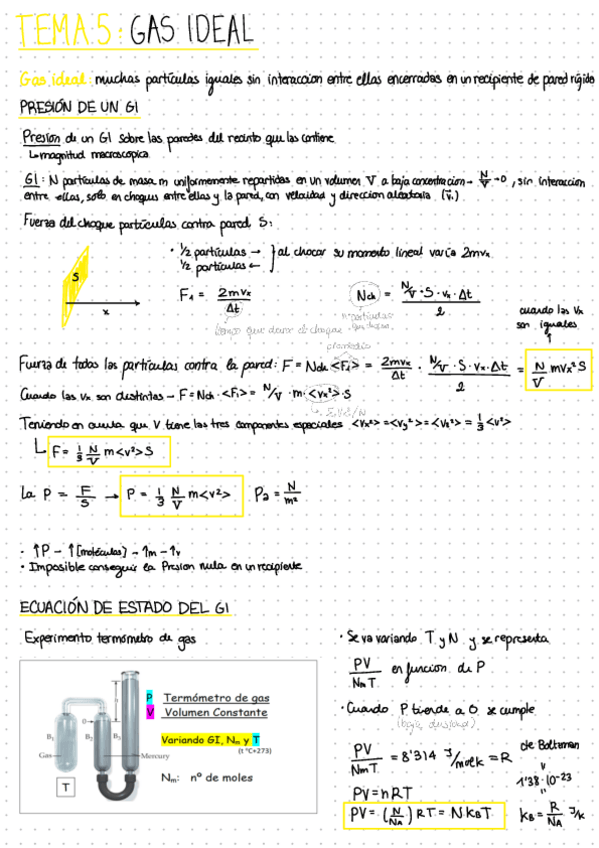 TEMA.5: GAS IDEAL
Gas ideal: muchas partículas iguales sin interaccion entre ellas encerradas en un recipiente de pared rígida
PRESIÓN DE UN GI
Presion de un GI sobre las paredes del recinto que las contiene
↳ magnitud macroscópica
GI: N partículas de masa m uniformemente repartidas en un volumen V a baja concentracion → N/V → 0, sin interaccion
entre ellas, solo en choques entre ellas y la pared, con velocidad y direccion aleatoria (v⃗.)
Fuerza del choque partículas contra pared S:
S
x
· 1/2 partículas →
1/2 partículas ←
} al chocar su momento lineal varía 2mvx
F1 = 2mvx / Δt
tiempo que durar el choque
Nch = N/V · S · vx · Δt / 2
nº partículas que chocan
cuando las vx son iguales
promedio
Fuerza de todas las partículas contra la pared: F = Nch <F1> = 2mvx/Δt · N/V · S · vx · Δt / 2 = N/V mvx² S
Cuando las vx son distintas → F = Nch · <F1> = N/V · m · <vx²> · S
Teniendo en cuenta que V tiene las tres componentes espaciales <vx²> = <vy²> = <vz²> = 1/3 <v²>
↳ F = 1/3 N/V m <v²> S
La P = F/S → P = 1/3 N/V m <v²> Pa = N/m²
· ↑P → ↑[moléculas] → ↑m → ↑v
· Imposible conseguir la Presion nula en un recipiente
ECUACIÓN DE ESTADO DEL GI
Experimento termómetro de gas
B₁
B₂
B₃
0
Gas
Mercury
T
P Termómetro de gas
V Volumen Constante
Variando GI, Nm y T
(t ºC+273)
Nm: nº de moles
· Se va variando T y N y se representa
PV / NmT en funcion de P
· Cuando P tiende a 0 se cumple
(baja densidad)
PV / NmT = 8'314 J/molK = R
PV = nRT
PV = (N/NA) RT = N KB T
de Boltzman
1'38·10⁻²³
KB = R/NA J/K